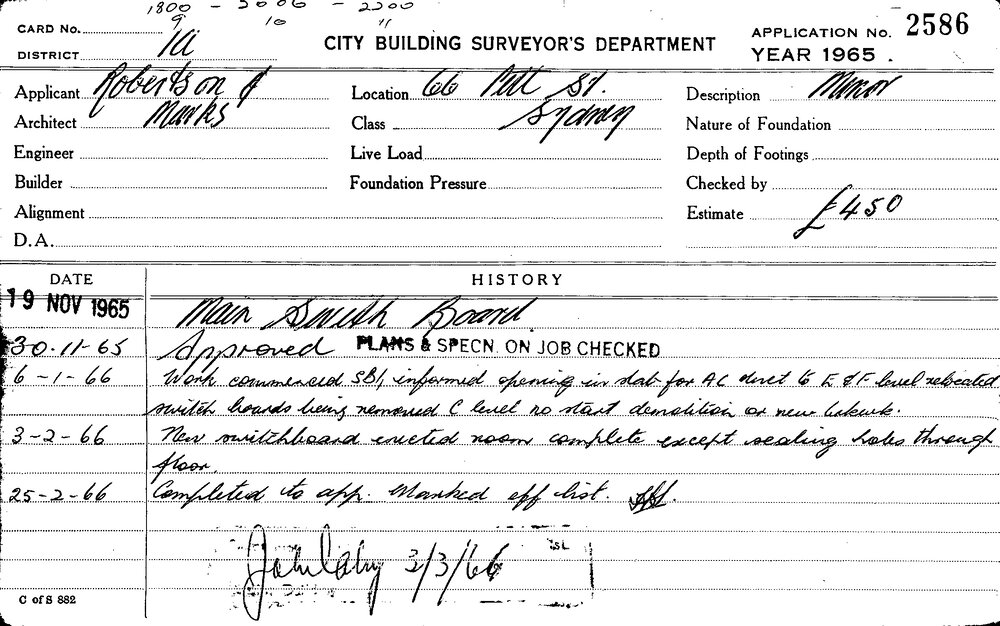 1800 - 2000 - 2200
9 10 11
CARD No.
DISTRICT
CITY BUILDING SURVEYOR'S DEPARTMENT
APPLICATION No. 2586
YEAR 1965.
Applicant Robertson &
Location 66 Pitt St.
Description Minor
Architect Marks
Class Sydney
Nature of Foundation
Engineer
Live Load
Depth of Footings
Builder
Foundation Pressure
Checked by
Alignment
Estimate £450
D.A.
DATE HISTORY
19 NOV 1965 Main Switch Board
30-11-65 Approved PLANS & SPECN. ON JOB CHECKED
6-1-66 Work commenced SBI, informed opening in slab for AC duct to E & F level relocated
switch boards being removed C level no start demolition or new bkwk.
3-2-66 New switchboard erected room complete except sealing holes through
floor.
25-2-66 Completed to app. Marked off list.
3/3/66
C of S 882